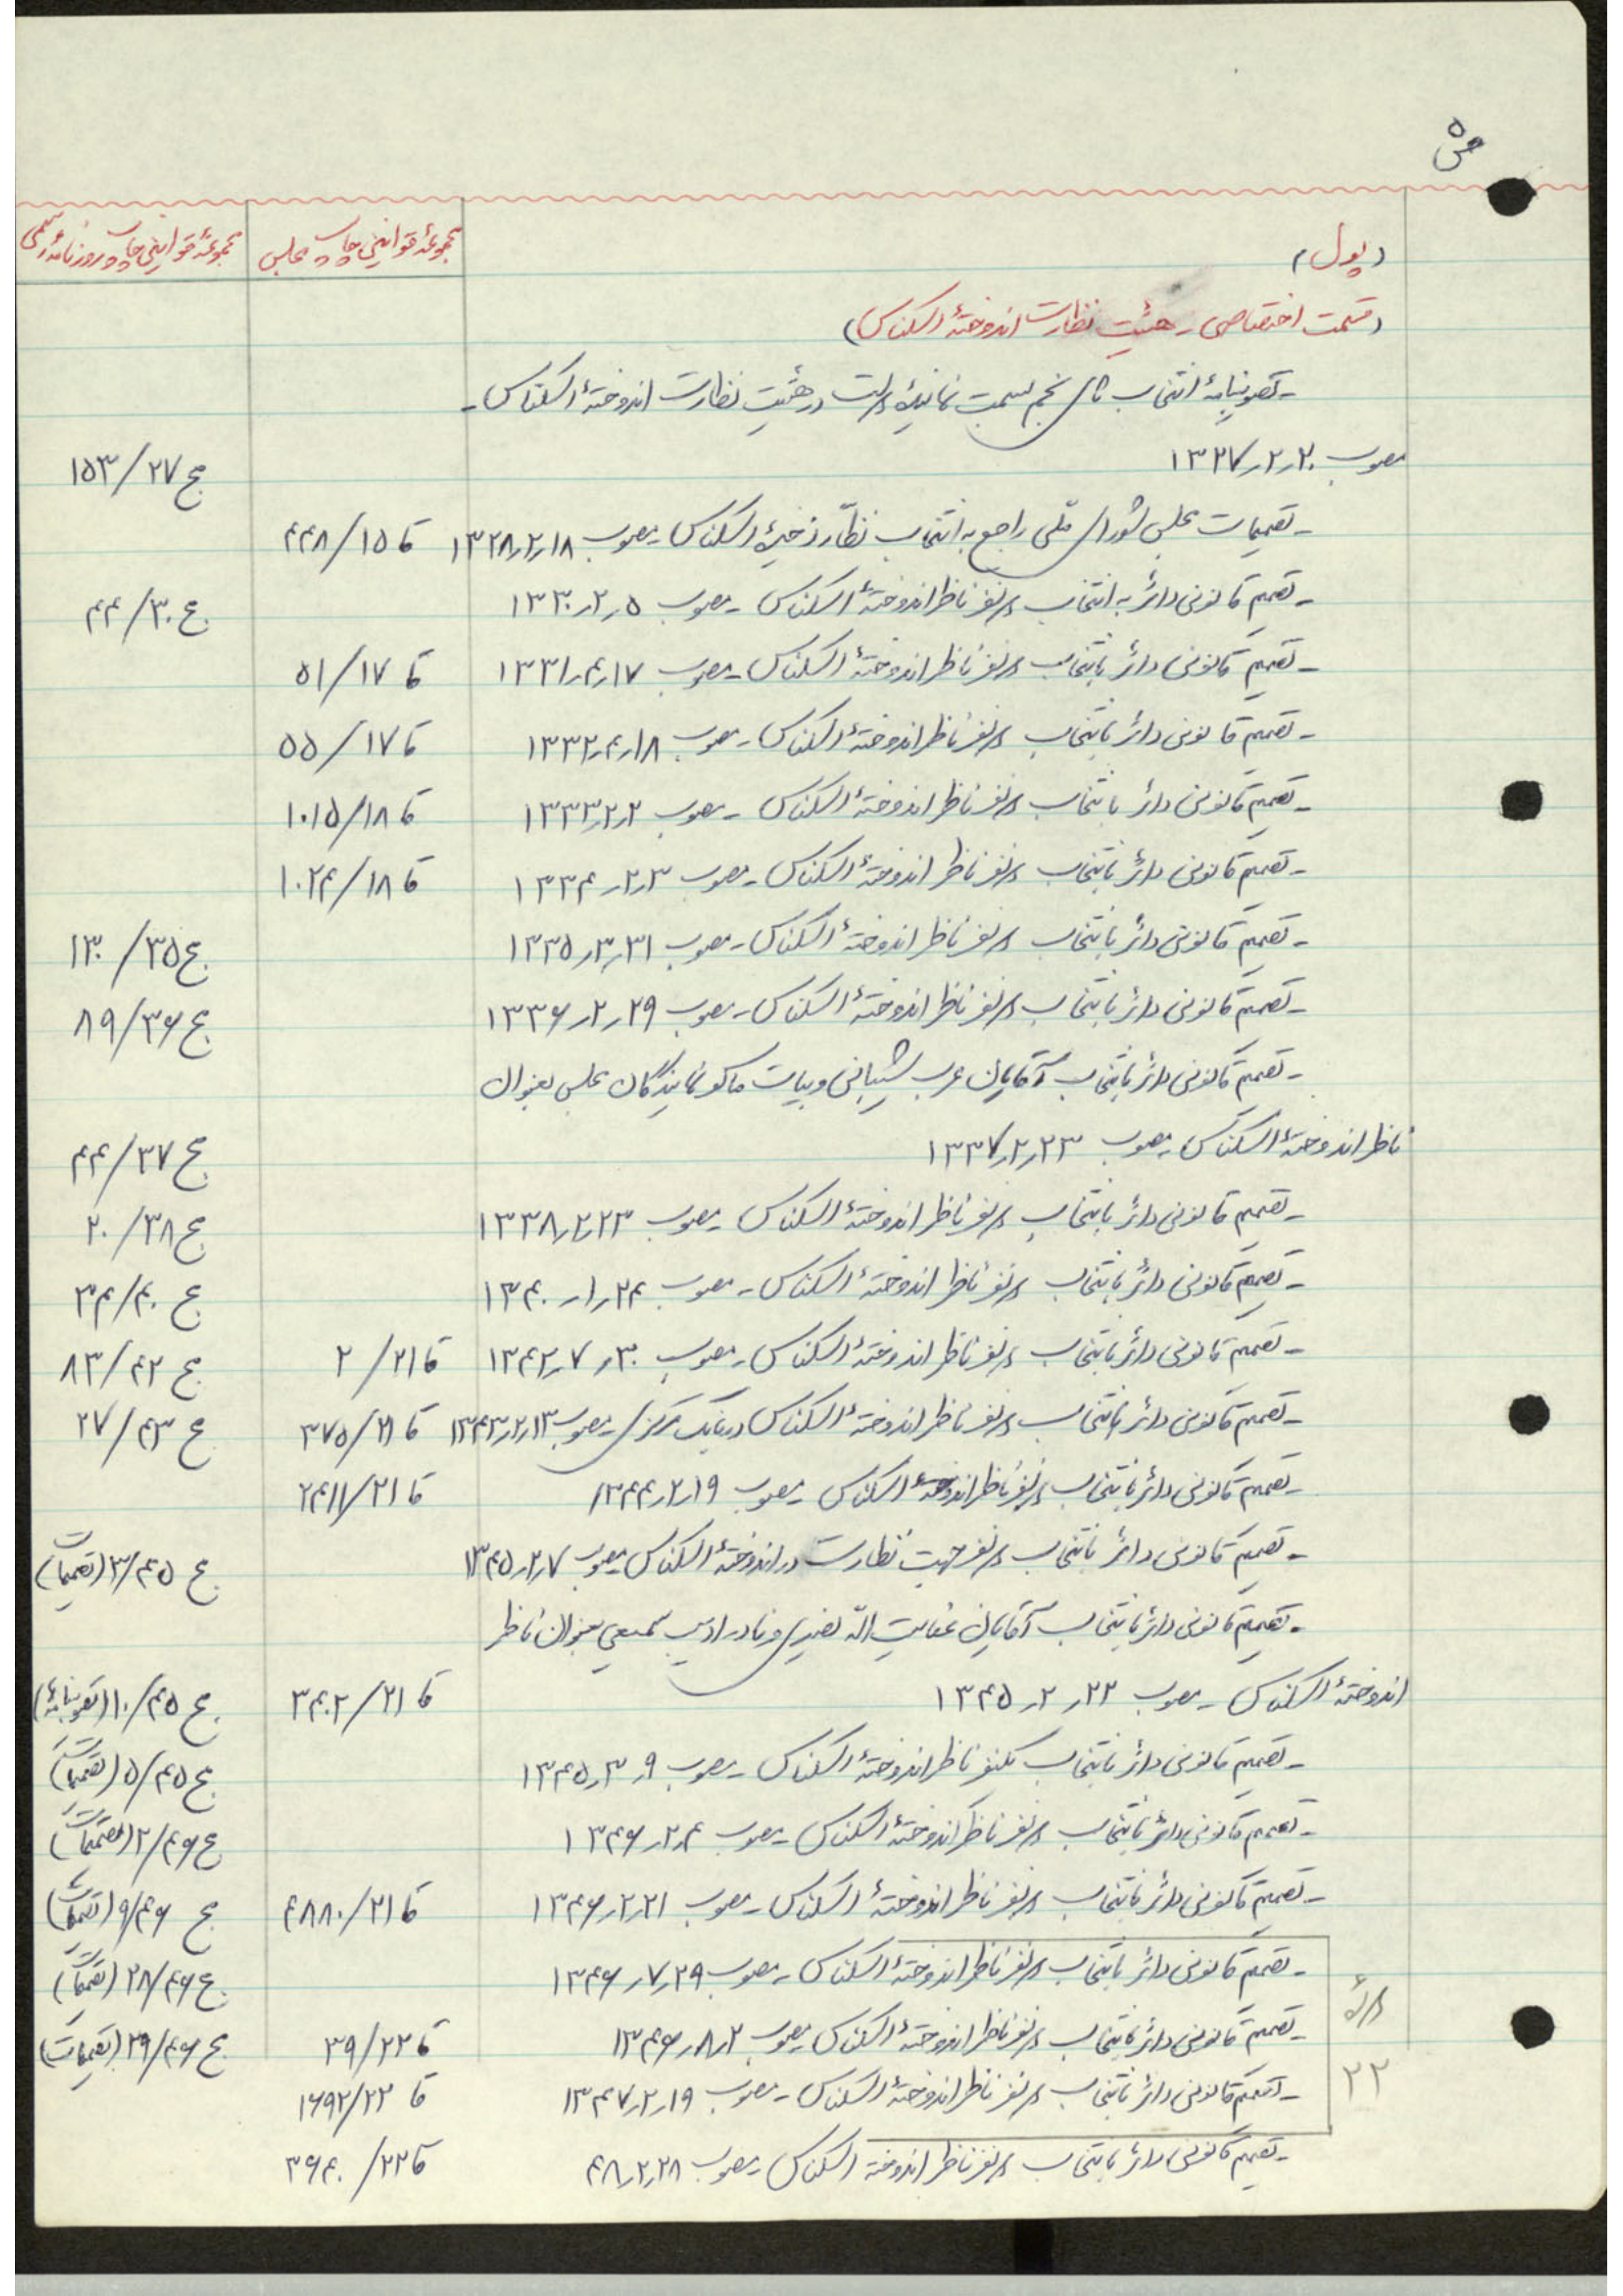 ص ۵
مجموعهٔ قوانین چاپ مجلس
مجموعهٔ قوانین چاپ روزنامهٔ رسمی
(پول)
(قسمت اختصاصی - هیئت نظارت اندوختهٔ اسکناس)
- تصویبنامهٔ انتخاب آقای نجم بسمت نمایندهٔ دولت در هیئت نظارت اندوختهٔ اسکناس -
مصوب ۱۳۲۷٫۲٫۲۰ ج ۱۵۳/۲۷
- تصمیمات مجلس شورای ملی راجع به انتخاب نظّار ذخیرهٔ اسکناس - مصوب ۱۳۲۸٫۲٫۱۸ قا ۴۴۸/۱۵
- تصمیم قانونی دائر به انتخاب دو نفر ناظر اندوختهٔ اسکناس - مصوب ۱۳۳۰٫۲٫۵ ج ۴۴/۳۰
- تصمیم قانونی دائر بانتخاب دو نفر ناظر اندوختهٔ اسکناس - مصوب ۱۳۳۱٫۴٫۱۷ قا ۵۱/۱۷
- تصمیم قانونی دائر بانتخاب دو نفر ناظر اندوختهٔ اسکناس - مصوب ۱۳۳۲٫۴٫۱۸ قا ۵۵/۱۷
- تصمیم قانونی دائر بانتخاب دو نفر ناظر اندوختهٔ اسکناس - مصوب ۱۳۳۳٫۲٫۲ قا ۱۰۱۵/۱۸
- تصمیم قانونی دائر بانتخاب دو نفر ناظر اندوختهٔ اسکناس - مصوب ۱۳۳۴٫۲٫۳ قا ۱۰۲۴/۱۸
- تصمیم قانونی دائر بانتخاب دو نفر ناظر اندوختهٔ اسکناس - مصوب ۱۳۳۵٫۳٫۳۱ ج ۱۳۰/۳۵
- تصمیم قانونی دائر بانتخاب دو نفر ناظر اندوختهٔ اسکناس - مصوب ۱۳۳۶٫۲٫۲۹ ج ۸۹/۳۶
- تصمیم قانونی دائر بانتخاب آقایان عرب شیبانی و بیات ماکو نمایندگان مجلس بعنوان
ناظر اندوختهٔ اسکناس - مصوب ۱۳۳۷٫۲٫۲۳ ج ۴۴/۳۷
- تصمیم قانونی دائر بانتخاب دو نفر ناظر اندوختهٔ اسکناس - مصوب ۱۳۳۸٫۲٫۲۳ ج ۲۰/۳۸
- تصمیم قانونی دائر بانتخاب دو نفر ناظر اندوختهٔ اسکناس - مصوب ۱۳۴۰٫۱٫۲۴ ج ۳۴/۴۰
- تصمیم قانونی دائر بانتخاب دو نفر ناظر اندوختهٔ اسکناس - مصوب ۱۳۴۲٫۷٫۳۰ قا ۲/۲۱ ج ۸۳/۴۲
- تصمیم قانونی دائر بانتخاب دو نفر ناظر اندوختهٔ اسکناس در بانک مرکزی - مصوب ۱۳۴۳٫۲٫۱۳ قا ۳۷۵/۲۱ ج ۲۷/۴۳
- تصمیم قانونی دائر بانتخاب دو نفر ناظر اندوختهٔ اسکناس - مصوب ۱۳۴۴٫۲٫۱۹ قا ۲۴۱۱/۲۱
- تصمیم قانونی دائر بانتخاب دو نفر جهت نظارت در اندوختهٔ اسکناس مصوب ۱۳۴۵٫۲٫۷ ج ۳/۴۵ (تصمیمات)
- تصمیم قانونی دائر بانتخاب آقایان عنایت الله نصیری و نادر ادیب سمیعی بعنوان ناظر
اندوختهٔ اسکناس - مصوب ۱۳۴۵٫۲٫۲۲ قا ۳۴۰۲/۲۱ ج ۱۰/۴۵ (تصویبنامه)
- تصمیم قانونی دائر بانتخاب یکنفر ناظر اندوختهٔ اسکناس - مصوب ۱۳۴۵٫۳٫۹ ج ۵/۴۵ (تصمیمات)
- تصمیم قانونی دائر بانتخاب دو نفر ناظر اندوختهٔ اسکناس - مصوب ۱۳۴۶٫۲٫۴ ج ۲/۴۶ (تصمیمات)
- تصمیم قانونی دائر بانتخاب دو نفر ناظر اندوختهٔ اسکناس - مصوب ۱۳۴۶٫۲٫۲۱ قا ۴۸۸۰/۲۱ ج ۹/۴۶ (تصمیمات)
- تصمیم قانونی دائر بانتخاب دو نفر ناظر اندوختهٔ اسکناس - مصوب ۱۳۴۶٫۷٫۲۹ ج ۲۸/۴۶ (تصمیمات)
دورهٔ
- تصمیم قانونی دائر بانتخاب دو نفر ناظر اندوختهٔ اسکناس مصوب ۱۳۴۶٫۸٫۲ قا ۳۹/۲۲ ج ۲۹/۴۶ (تصمیمات)
۲۲
- تصمیم قانونی دائر بانتخاب دو نفر ناظر اندوختهٔ اسکناس - مصوب ۱۳۴۷٫۲٫۱۹ قا ۱۶۹۲/۲۲
- تصمیم قانونی دائر بانتخاب دو نفر ناظر اندوخته اسکناس - مصوب ۴۸٫۲٫۲۸ قا ۳۶۴۰/۲۲